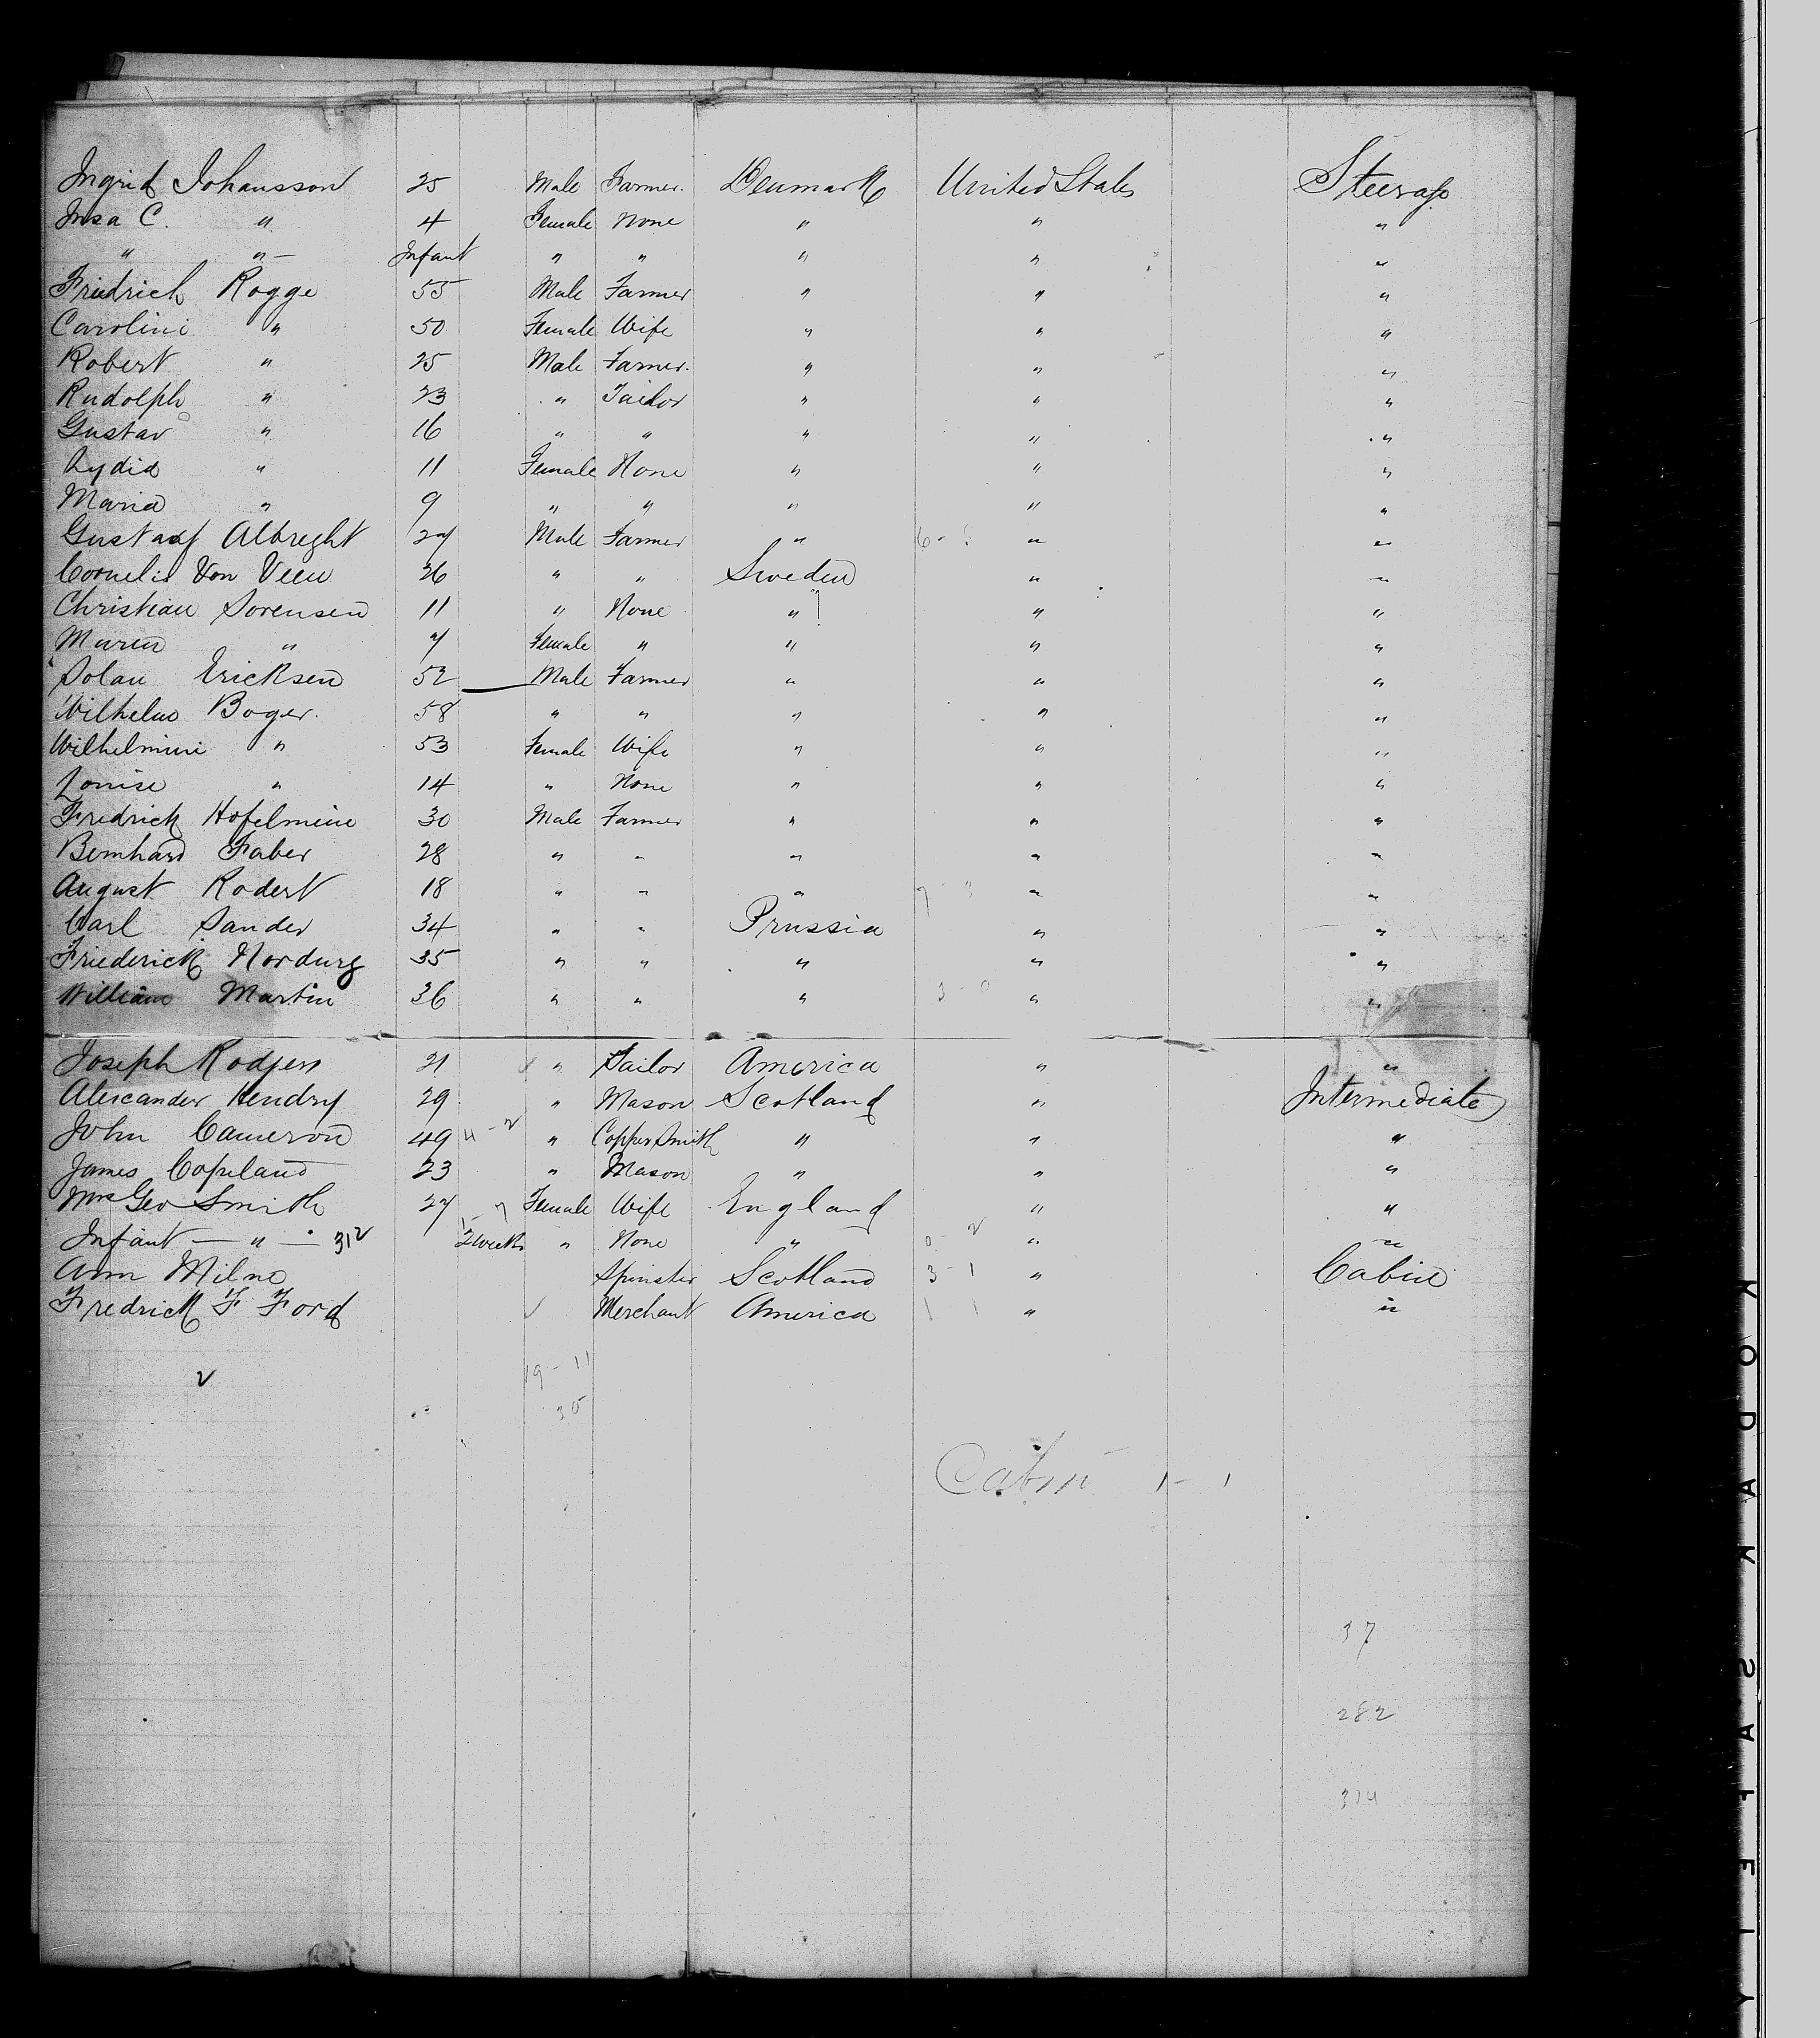 Ingrid Johansson 25 Male Farmer. Denmark United States Steerage
Insa C. " 4 Female None " " "
" " — Infant " " " " "
Friedrich Rogge 55 Male Farmer " " "
Carolini " 50 Female Wife " " "
Robert " 25 Male Farmer. " " "
Rudolph " 23 " Tailor " " "
Gustav " 16 " " " " "
Lydia " 11 Female None " " "
Maria " 9 " " " " "
Gustaaf Albreght 27 Male Farmer " " "
Cornelis Von Veen 26 " " Sweden " "
Christian Sorensen 11 " None " " "
Maren " 7 Female " " " "
Solau Ericksen 52 Male Farmer " " "
Wilhelm Boger. 58 " " " " "
Wilhelmini " 53 Female Wife " " "
Louise " 14 " None " " "
Fredrick Hofelmine 30 Male Farmer " " "
Bernhard Faber 28 " " " " "
August Rodert 18 " " " 7 - 3 " "
Carl Sander 34 " " Prussia " "
Friederick Nordurg 35 " " " " "
William Martin 36 " " " 3 - 0 " "
Joseph Rodgers 21 " Sailor America " "
Alexander Hendry 29 " Mason Scotland " Intermediate
John Cameron 49 4 - 2 " Copper Smith " " "
James Copeland 23 " Mason " " "
Mrs Geo Smith 27 Female Wife England " "
Infant — " — 312 2 weeks " None " 0 - 2 " "
Ann Milne Spinster Scotland 3 - 1 " Cabin
Fredrick F Ford Merchant America 1 1 " "
19 - 11
30
Cabin 1 - 1
37
282
314
KODAK SAFETY